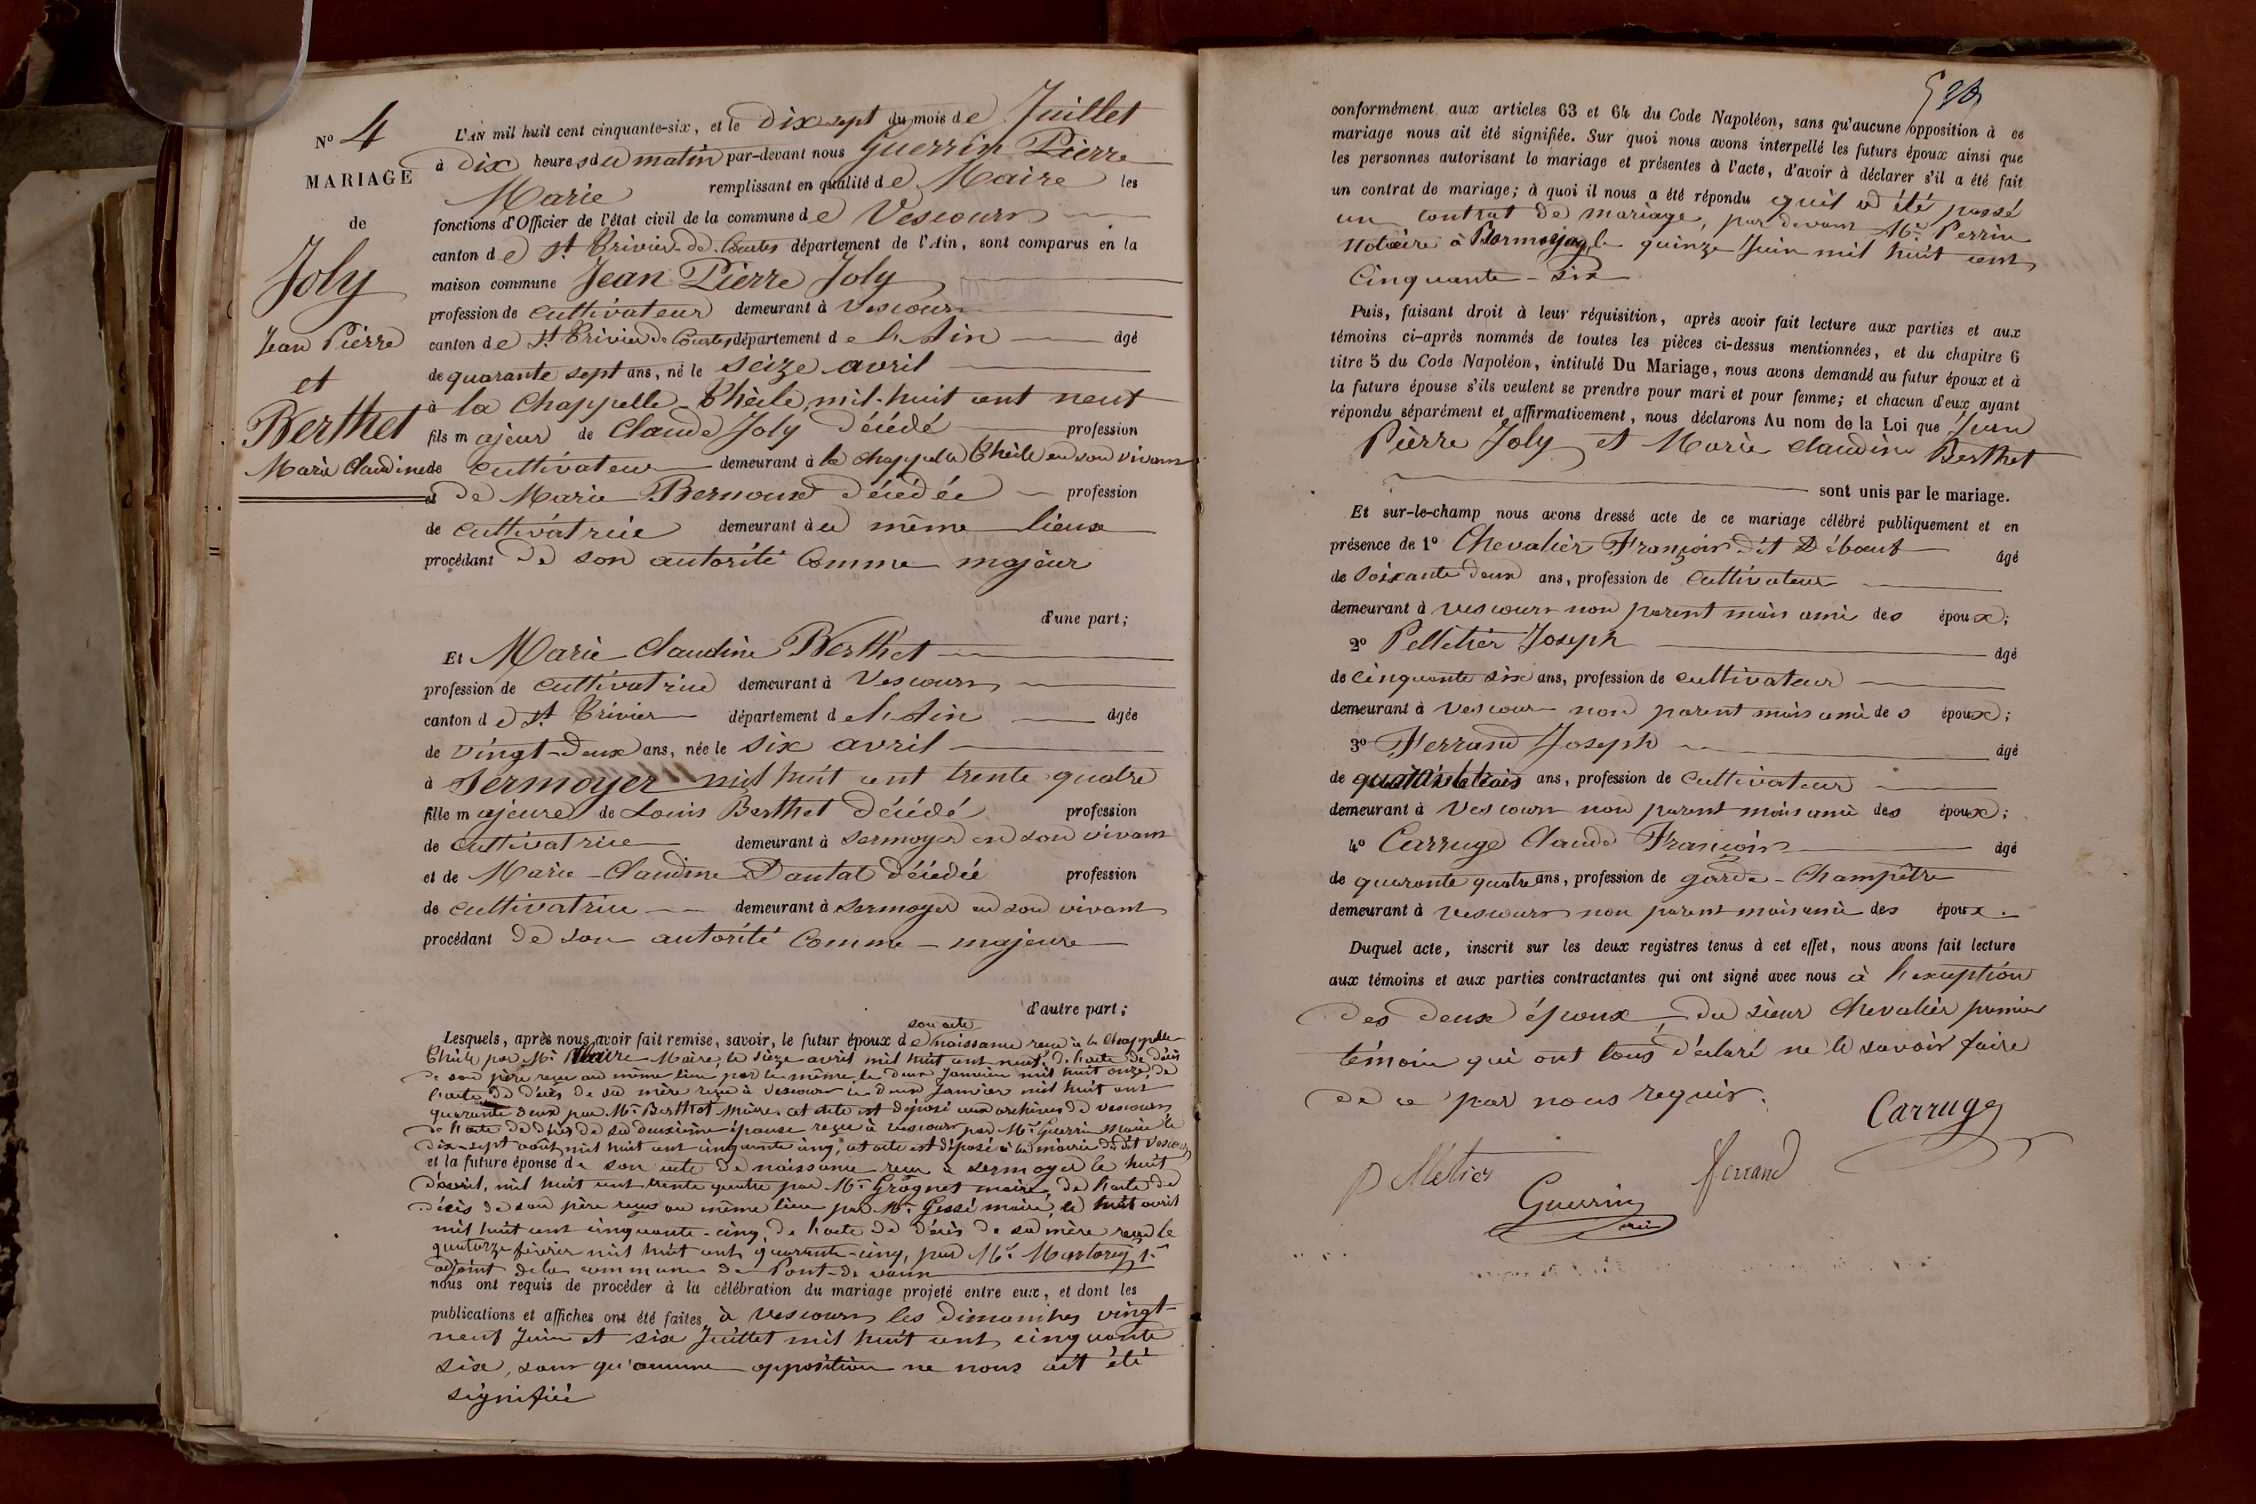 N° 4
MARIAGE
de
Joly
Jean Pierre
et
Berthet
Marie Claudine
L'AN mil huit cent cinquante-six, et le dix sept du mois de Juillet
à dix heures du matin par-devant nous Guerrin Pierre
Marie remplissant en qualité de Maire les
fonctions d'Officier de l'état civil de la commune de Vescours
canton de St Trivier de Courtes département de l'Ain, sont comparus en la
maison commune Jean Pierre Joly
profession de cultivateur demeurant à Vescours
canton de St Trivier de Courtes département de l'Ain âgé
de quarante sept ans, né le seize avril
à la Chappelle Thècle, mil huit cent neuf
fils majeur de Claude Joly décédé profession
de cultivateur demeurant à la chappelle Thècle en son vivant
et de Marie Bernoux décédée profession
de cultivatrice demeurant à ce même lieux
procédant de son autorité comme majeur
d'une part;
Et Marie Claudine Berthet
profession de cultivatrice demeurant à Vescours
canton de St Trivier département de l'Ain âgée
de vingt-deux ans, née le six avril
à Sermoyer mil huit cent trente quatre
fille majeure de Louis Berthet décédé profession
de cultivatrice demeurant à Sermoyer en son vivant
et de Marie-Claudine Dantat décédée profession
de cultivatrice demeurant à Sermoyer en son vivant
procédant de son autorité comme majeure
d'autre part;
son acte
Lesquels, après nous avoir fait remise, savoir, le futur époux de naissance reçu à la Chappelle
Thècle par Mr Maire, le sieze avril mil huit cent neuf, de l'acte de décès
de son père reçu au même lieu par le même le deux Janvier mil huit onze, de
l'acte de décès de sa mère reçu à Vescours le deux Janvier mil huit cent
quarante deux par Mr Berthot maire cet acte est déposé aux archives de vescours
de l'acte de décès de sa deuxième épouse reçu à vescours par Mr Guerrin Maire le
dix-sept août mil huit cent cinquante cinq, cet acte est déposé à la mairie du dit Vescours
et la future épouse de son acte de naissance reçu à Sermoyer le huit
d'avril, mil huit cent trente quatre par Mr Grognet maire, de l'acte de
décès de son père reçus au même lieu par Mr Gessé maire, le huit avril
mil huit cent cinquante-cinq, de l'acte de décès de sa mère reçu le
quatorze février mil huit cent quarante-cinq, par Mr 1er
adjoint de la commune de Pont-de vaux
nous ont requis de procéder à la célébration du mariage projeté entre eux, et dont les
publications et affiches ont été faites à Vescours les dimanches vingt-
neuf Juin et six Juillet mil huit cent cinquante
six, sans qu'aucune opposition ne nous ait été
signifiée
conformément aux articles 63 et 64 du Code Napoléon, sans qu'aucune opposition à ce
mariage nous ait été signifiée. Sur quoi nous avons interpellé les futurs époux ainsi que
les personnes autorisant le mariage et présentes à l'acte, d'avoir à déclarer s'il a été fait
un contrat de mariage; à quoi il nous a été répondu quil a été passé
un contrat de mariage, par devant Me Perrin
Notaire à le quinze Juin mil huit cent
Cinquante-six
Puis, faisant droit à leur réquisition, après avoir fait lecture aux parties et aux
témoins ci-après nommés de toutes les pièces ci-dessus mentionnées, et du chapitre 6
titre 5 du Code Napoléon, intitulé Du Mariage, nous avons demandé au futur époux et à
la future épouse s'ils veulent se prendre pour mari et pour femme; et chacun d'eux ayant
répondu séparément et affirmativement, nous déclarons Au nom de la Loi que Jean
Pierre Joly et Marie claudine Berthet
sont unis par le mariage.
Et sur-le-champ nous avons dressé acte de ce mariage célébré publiquement et en
présence de 1° Chevalier François dit Débout âgé
de soixante deux ans, profession de cultivateur
demeurant à vescours non parent mais ami des époux;
2° Pelletier Joseph âgé
de cinquante six ans, profession de cultivateur
demeurant à vescours non parent mais ami des époux;
3° Ferrand Joseph âgé
de ans, profession de cultivateur
demeurant à Vescours non parent mais ami des époux;
4° Carruge Claude François âgé
de quarante quatre ans, profession de garde-Champêtre
demeurant à vescours non parent mais ami des époux.
Duquel acte, inscrit sur les deux registres tenus à cet effet, nous avons fait lecture
aux témoins et aux parties contractantes qui ont signé avec nous à l'exception
des deux époux, du sieur Chevalier premier
témoin qui ont tous déclaré ne le savoir faire
de ce par nous requis.
Carruge
pelletier
ferrand
Guerrin